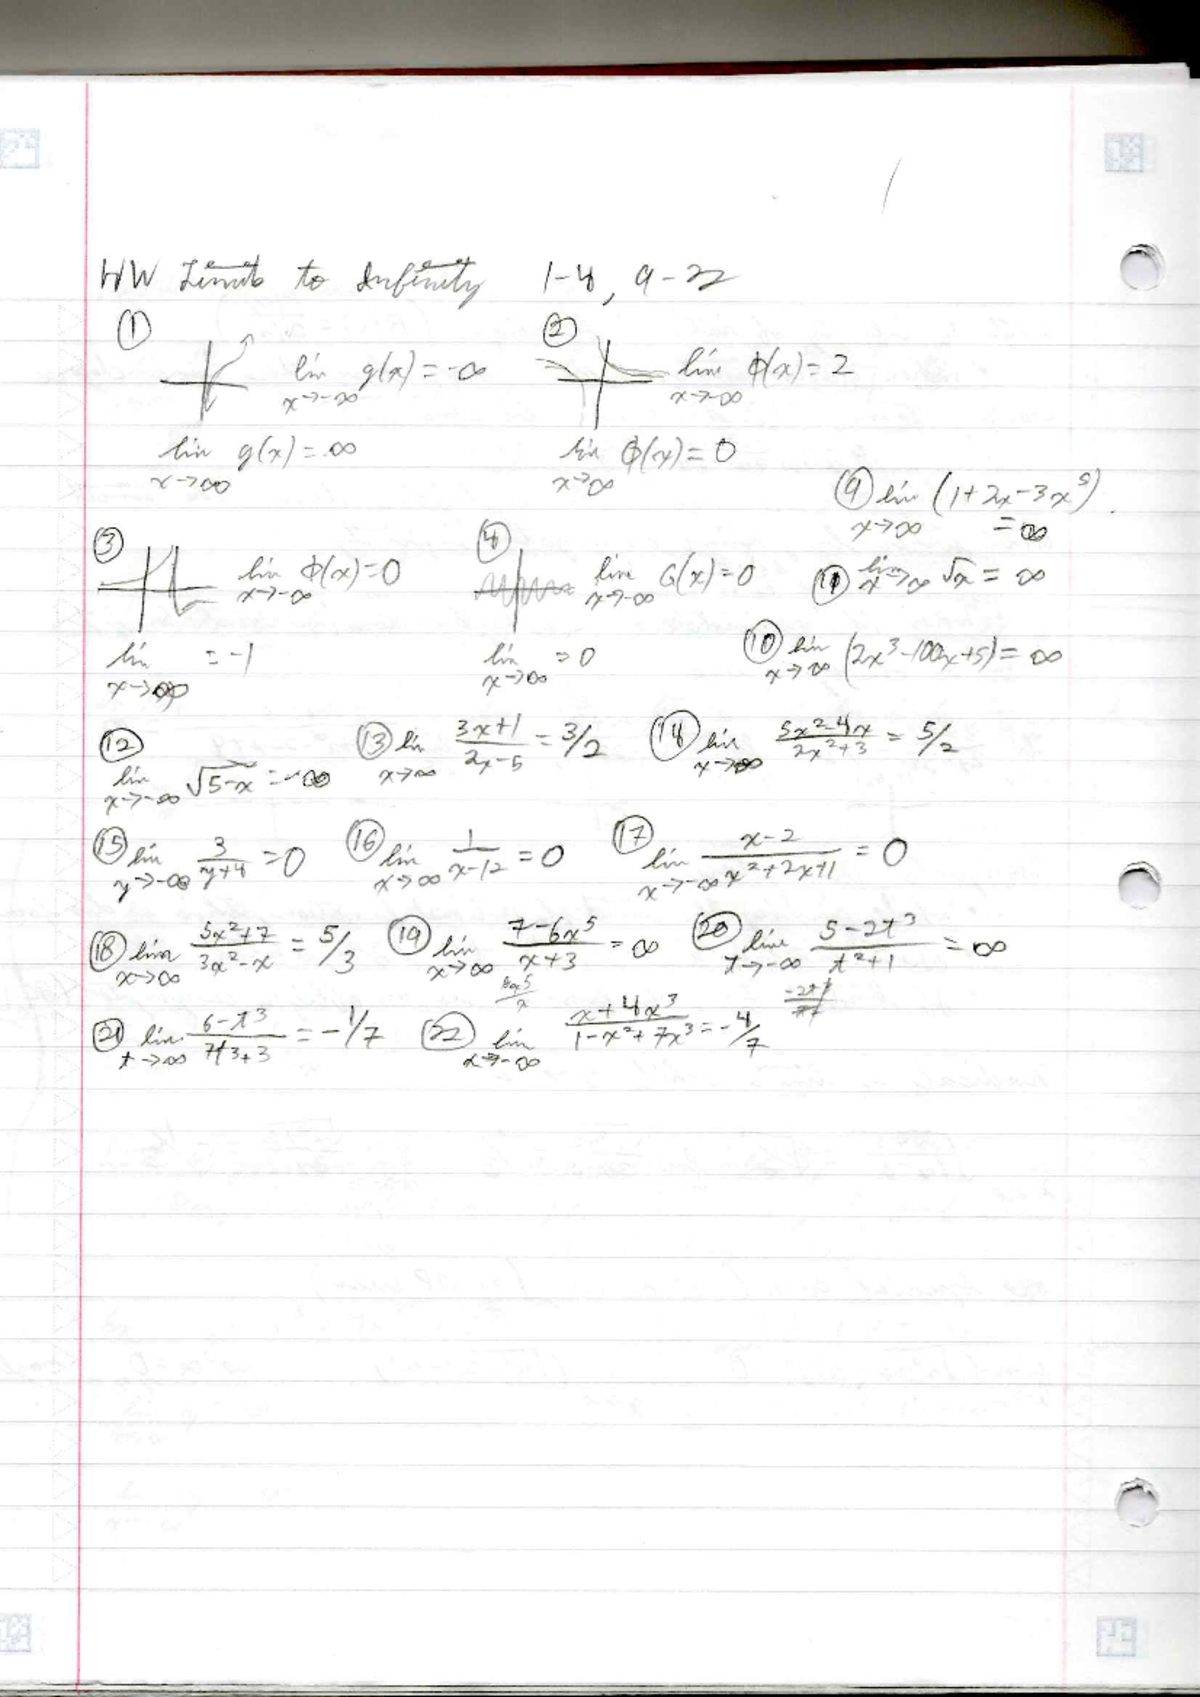 HW Limits to Infinity 1-4, 9-22
① lim x→-∞ g(x) = -∞ ② lim x→-∞ ϕ(x) = 2
lim x→∞ g(x) = ∞ lim x→∞ ϕ(x) = 0
⑨ lim x→∞ (1+2x-3x⁵) = ∞
③ lim x→-∞ ϕ(x) = 0 ④ lim x→-∞ G(x) = 0 ⑪ lim x→∞ √x = ∞
lim x→∞ = -1 lim x→∞ = 0 ⑩ lim x→∞ (2x³-100x+5) = ∞
⑫ lim x→-∞ √(5-x) = -∞ ⑬ lim x→∞ (3x+1)/(2x-5) = 3/2 ⑭ lim x→∞ (5x²-4x)/(2x²+3) = 5/2
⑮ lim y→-∞ 3/(y+4) = 0 ⑯ lim x→∞ 1/(x-12) = 0 ⑰ lim x→-∞ (x-2)/(x²+2x+1) = 0
⑱ lim x→∞ (5x²+7)/(3x²-x) = 5/3 ⑲ lim x→∞ (7-6x⁵)/(x+3) = ∞ ⑳ lim t→-∞ (5-2t³)/(t²+1) = ∞
㉑ lim t→∞ (6-t³)/(7t³+3) = -1/7 ㉒ lim x→-∞ (x+4x³)/(1-x²+7x³) = -4/7